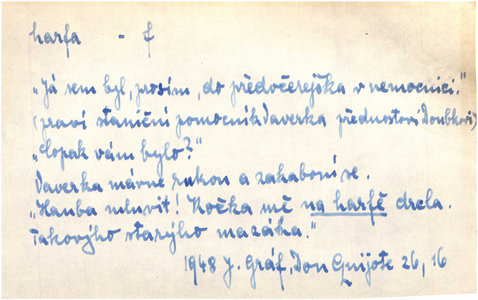 harfa - f
"Já sem byl, prosím, do předvčerejška v nemocnici."
(praví staniční pomocník Vaverka přednostovi Doubkovi)
"Copak vám bylo?"
Vaverka mávne rukou a zakaboní se.
"Hanba mluvit! Kočka mě na harfě drcla.
Takovýho starýho mazáka."
1948 J. Gráf, Don Quijote 26, 16